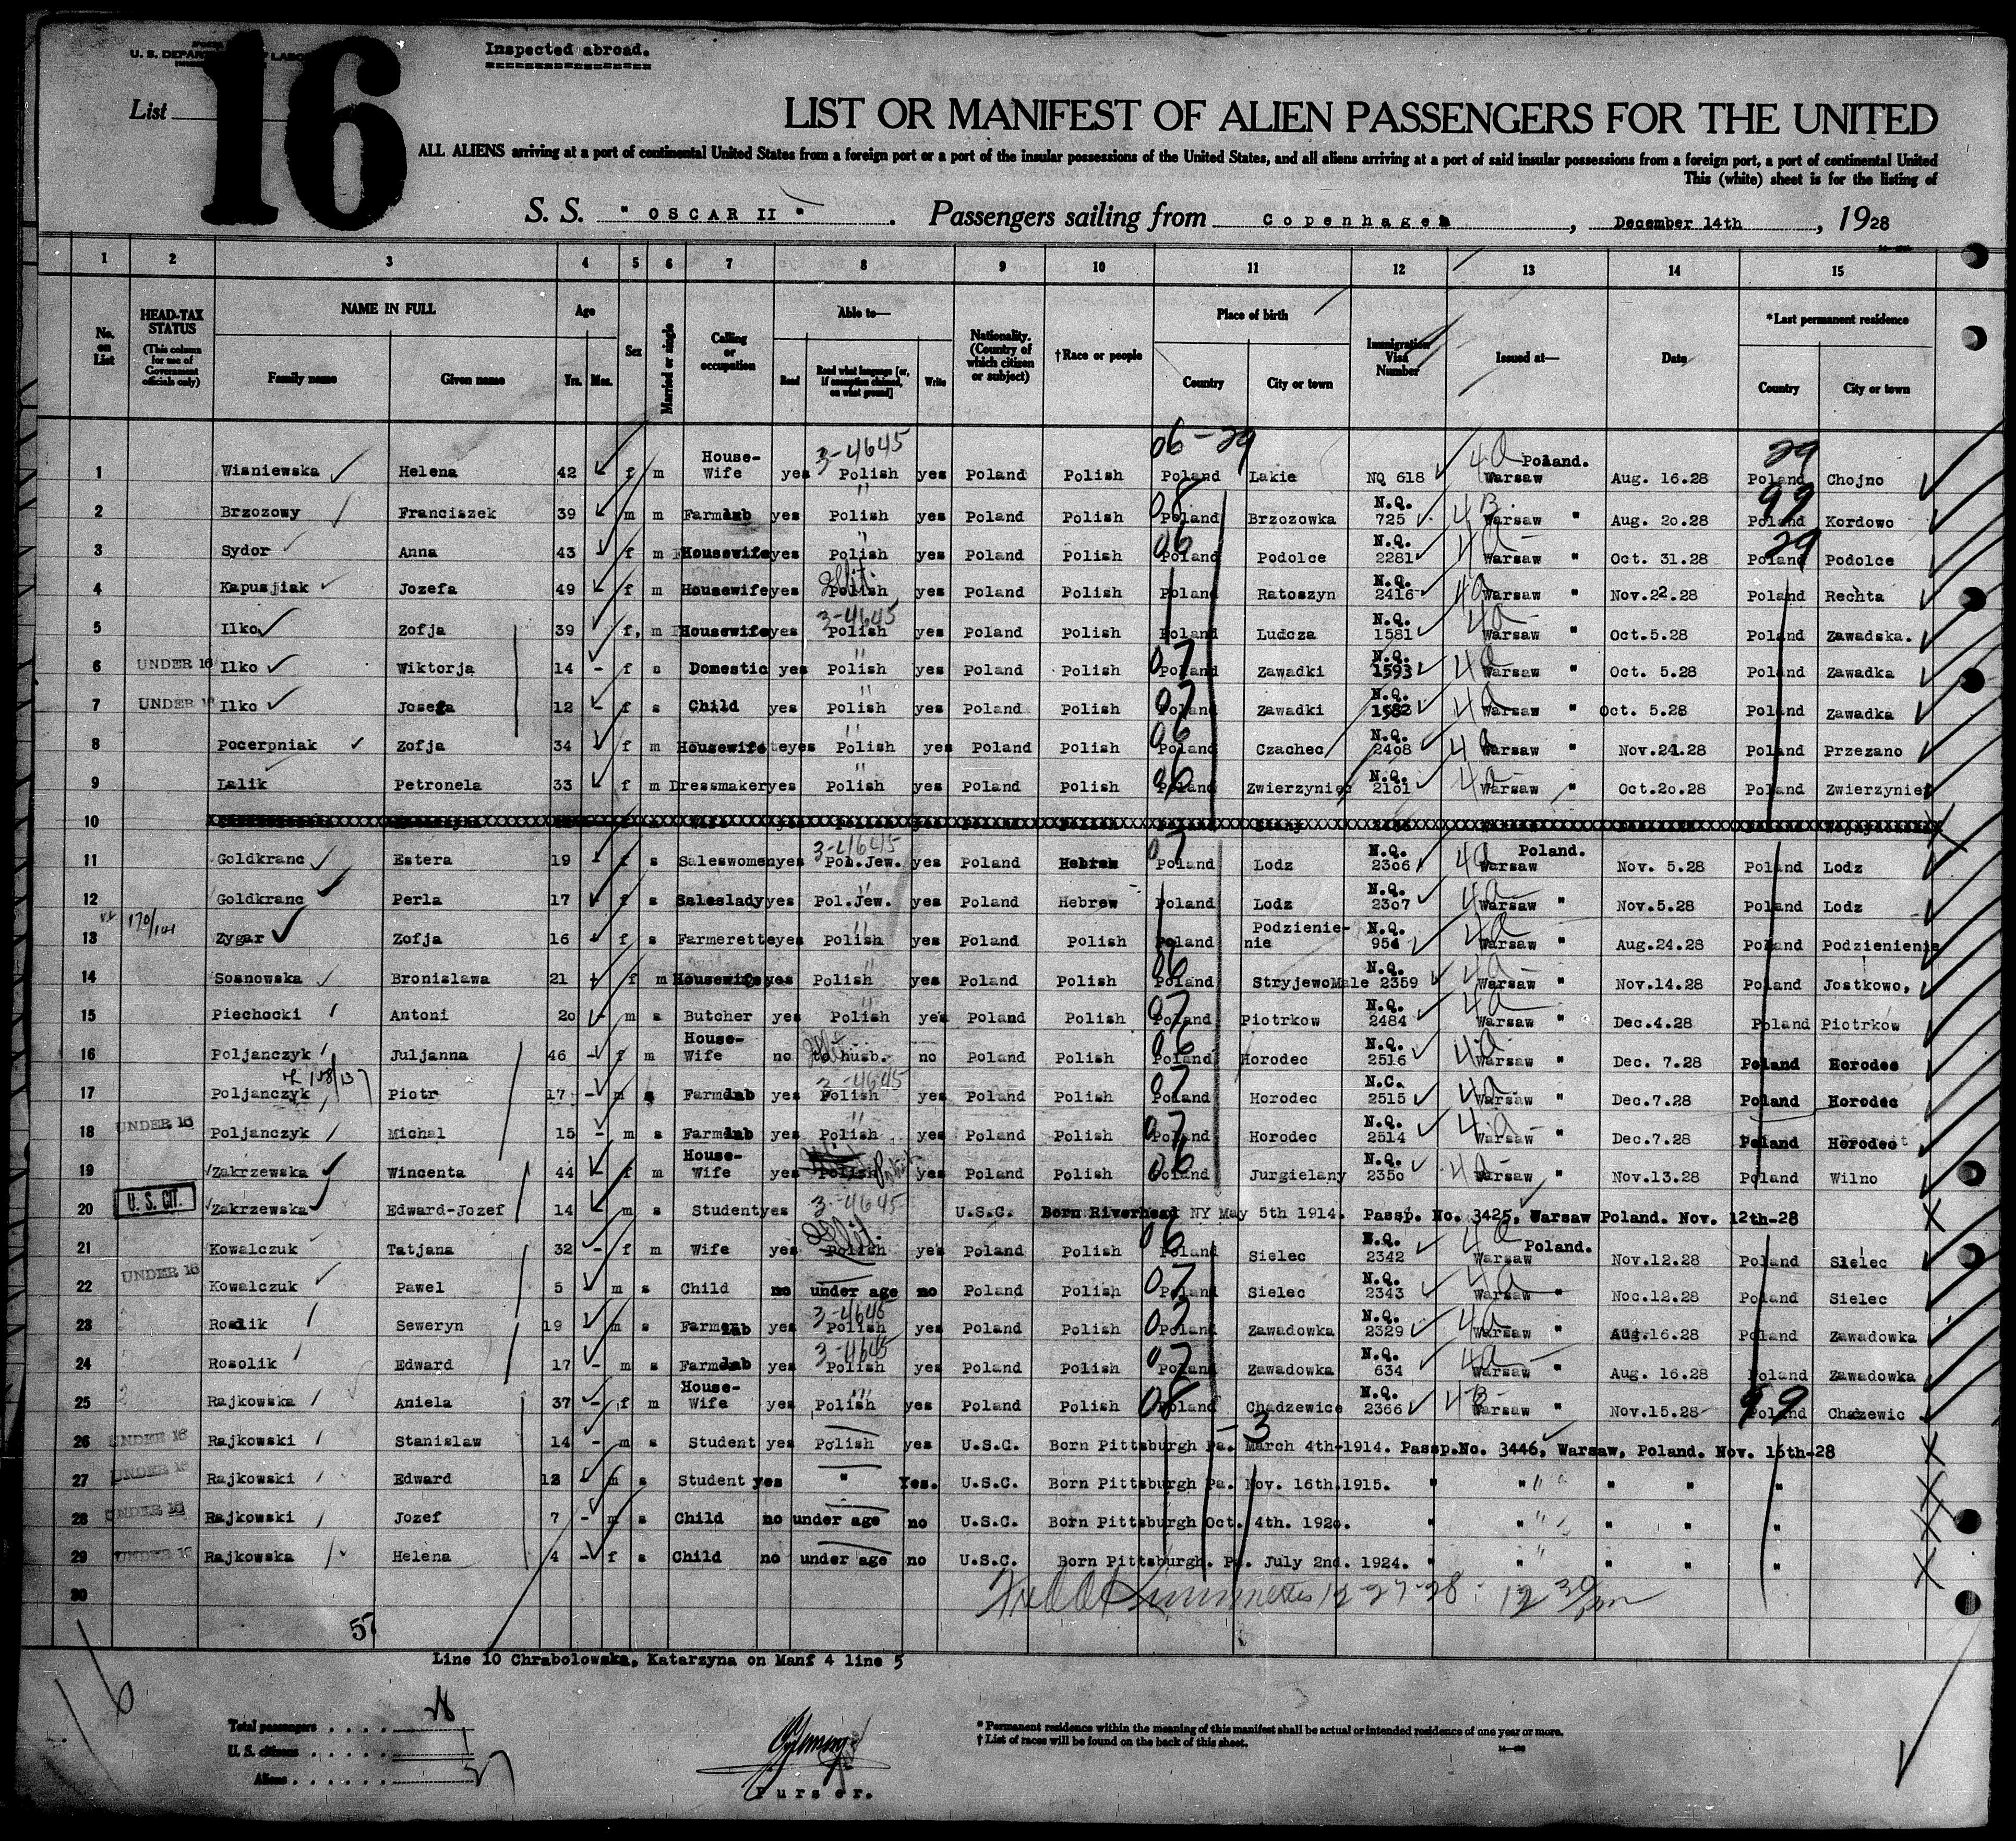 Inspected abroad.
U. S. DEPARTMENT OF LABOR
List 16
LIST OR MANIFEST OF ALIEN PASSENGERS FOR THE UNITED
ALL ALIENS arriving at a port of continental United States from a foreign port or a port of the insular possessions of the United States, and all aliens arriving at a port of said insular possessions from a foreign port, a port of continental United
This (white) sheet is for the listing of
S. S. " OSCAR II ". Passengers sailing from Copenhagen, December 14th, 1928
1 2 3 4 5 6 7 8 9 10 11 12 13 14 15
No. on List HEAD-TAX STATUS (This column for use of Government officials only) NAME IN FULL Family name Given name Age Yrs. Mos. Sex Married or single Calling or occupation Able to— Read Read what language [or, if exemption claimed, on what ground] Write Nationality. (Country of which citizen or subject) †Race or people Place of birth Country City or town Immigration Visa Number Issued at— Date *Last permanent residence Country City or town
06-29 29
1 Wisniewska Helena 42 f m House-Wife yes 3-4645 Polish yes Poland Polish Poland Lakie NQ 618 4a Poland. Warsaw Aug. 16.28 Poland Chojno
2 Brzozowy Franciszek 39 m m Farmlab yes " Polish yes Poland Polish 08 Poland Brzozowka N.Q. 725 4B Warsaw " Aug. 20.28 99 Poland Kordowo
3 Sydor Anna 43 f m Housewife yes " Polish yes Poland Polish 06 Poland Podolce N.Q. 2281 4a Warsaw " Oct. 31.28 29 Poland Podolce
4 Kapusjiak Jozefa 49 f m Housewife yes Polish yes Poland Polish Poland Ratoszyn N.Q. 2416 4a Warsaw " Nov.22.28 Poland Rechta
5 Ilko Zofja 39 f, m Housewife yes 3-4645 Polish yes Poland Polish Poland Ludcza N.Q. 1581 4a Warsaw " Oct.5.28 Poland Zawadska.
6 UNDER 16 Ilko Wiktorja 14 - f s Domestic yes " Polish yes Poland Polish 07 Poland Zawadki N.Q. 1593 4a Warsaw " Oct. 5.28 Poland Zawadka
7 UNDER 16 Ilko Josefa 12 f s Child yes " Polish yes Poland Polish 07 Poland Zawadki N.Q. 1582 4a Warsaw " Oct. 5.28 Poland Zawadka
8 Pocerpniak Zofja 34 f m Housewife yes " Polish yes Poland Polish 06 Poland Czachec N.Q. 2408 4a Warsaw " Nov.21.28 Poland Przezano
9 Lalik Petronela 33 f m Dressmaker yes " Polish yes Poland Polish 06 Poland Zwierzyniec N.Q. 2181 4a Warsaw " Oct.20.28 Poland Zwierzyniec
10
11 Goldkranc Estera 19 f s Saleswomen yes 3-4645 Pol.Jew. yes Poland Hebrew 07 Poland Lodz N.Q. 2306 4a Poland. Warsaw Nov. 5.28 Poland Lodz
12 Goldkranc Perla 17 f s Saleslady yes " Pol.Jew. yes Poland Hebrew Poland Lodz N.Q. 2307 4a Warsaw " Nov.5.28 Poland Lodz
13 Zygar Zofja 16 f s Farmerette yes " Polish yes Poland Polish Poland Podzienie-nie N.Q. 4a Warsaw " Aug.24.28 Poland Podzienienie
14 Sosnowska Bronislawa 21 f m Housewife yes " Polish yes Poland Polish 06 Poland StryjewoMale N.Q. 2359 4a Warsaw " Nov.14.28 Poland Jostkowo,
15 Piechocki Antoni 20 - m s Butcher yes " Polish yes Poland Polish 07 Poland Piotrkow N.Q. 2484 4a Warsaw " Dec.4.28 Poland Piotrkow
16 Poljanczyk Juljanna 46 - f m House-Wife no to husb. no Poland Polish 06 Poland Horodec N.Q. 2516 4a Warsaw " Dec. 7.28 Poland Horodec
17 Poljanczyk Piotr 17 - m s Farmlab yes 3-4645 Polish yes Poland Polish 07 Poland Horodec N.C. 2515 4a Warsaw " Dec.7.28 Poland Horodec
18 UNDER 16 Poljanczyk Michal 15 - m s Farmlab yes " Polish yes Poland Polish 07 Poland Horodec N.Q. 2514 4a Warsaw " Dec.7.28 Poland Horodec
19 Zakrzewska Wincenta 44 f m House-Wife yes Polish yes Poland Polish 06 Poland Jurgielany N.Q. 2350 4a Warsaw " Nov.13.28 Poland Wilno
20 U. S. CIT. Zakrzewska Edward-Jozef 14 m s Student yes 3-4645 U.S.C. Born Riverhead NY May 5th 1914. Passp. No. 3425, Warsaw Poland. Nov. 12th-28
21 Kowalczuk Tatjana 32 - f m Wife yes Polish yes Poland Polish 06 Poland Sielec N.Q. 2342 4a Poland. Warsaw Nov.12.28 Poland Sielec
22 UNDER 16 Kowalczuk Pawel 5 m s Child no under age no Poland Polish 07 Poland Sielec N.Q. 2343 4a Warsaw " Noc.12.28 Poland Sielec
23 Roslik Seweryn 19 m s Farmlab yes 3-4645 Polish yes Poland Polish 07 Poland Zawadowka N.Q. 2329 4a Warsaw " Aug.16.28 Poland Zawadowka
24 Rosolik Edward 17 - m s Farmlab yes 3-4645 Polish yes Poland Polish 07 Poland Zawadowka N.Q. 634 4a Warsaw " Aug. 16.28 Poland Zawadowka
25 Rajkowska Aniela 37 - f m House-Wife yes " Polish yes Poland Polish 08 Poland Chadzewice N.Q. 2366 4B Warsaw " Nov.15.28 99 Poland Chadzewic
26 UNDER 16 Rajkowski Stanislaw 14 - m s Student yes Polish yes U.S.C. Born Pittsburgh Pa. March 4th-1914. Passp.No. 3446, Warsaw, Poland. Nov. 16th-28
27 UNDER 16 Rajkowski Edward 13 m s Student yes " Yes. U.S.C. Born Pittsburgh Pa. Nov. 16th.1915. " " " " "
28 UNDER 16 Rajkowski Jozef 7 - m s Child no under age no U.S.C. Born Pittsburgh Oct. 4th. 1920. " " " " "
29 UNDER 16 Rajkowska Helena 4 - f s Child no under age no U.S.C. Born Pittsburgh. Pa. July 2nd. 1924. " " " " "
30
12-27-28 12 30 pm
57
Line 10 Chrabolowska, Katarzyna on Manf 4 line 5
Total passengers
U. S. citizens
Aliens
Purser.
* Permanent residence within the meaning of this manifest shall be actual or intended residence of one year or more.
† List of races will be found on the back of this sheet.